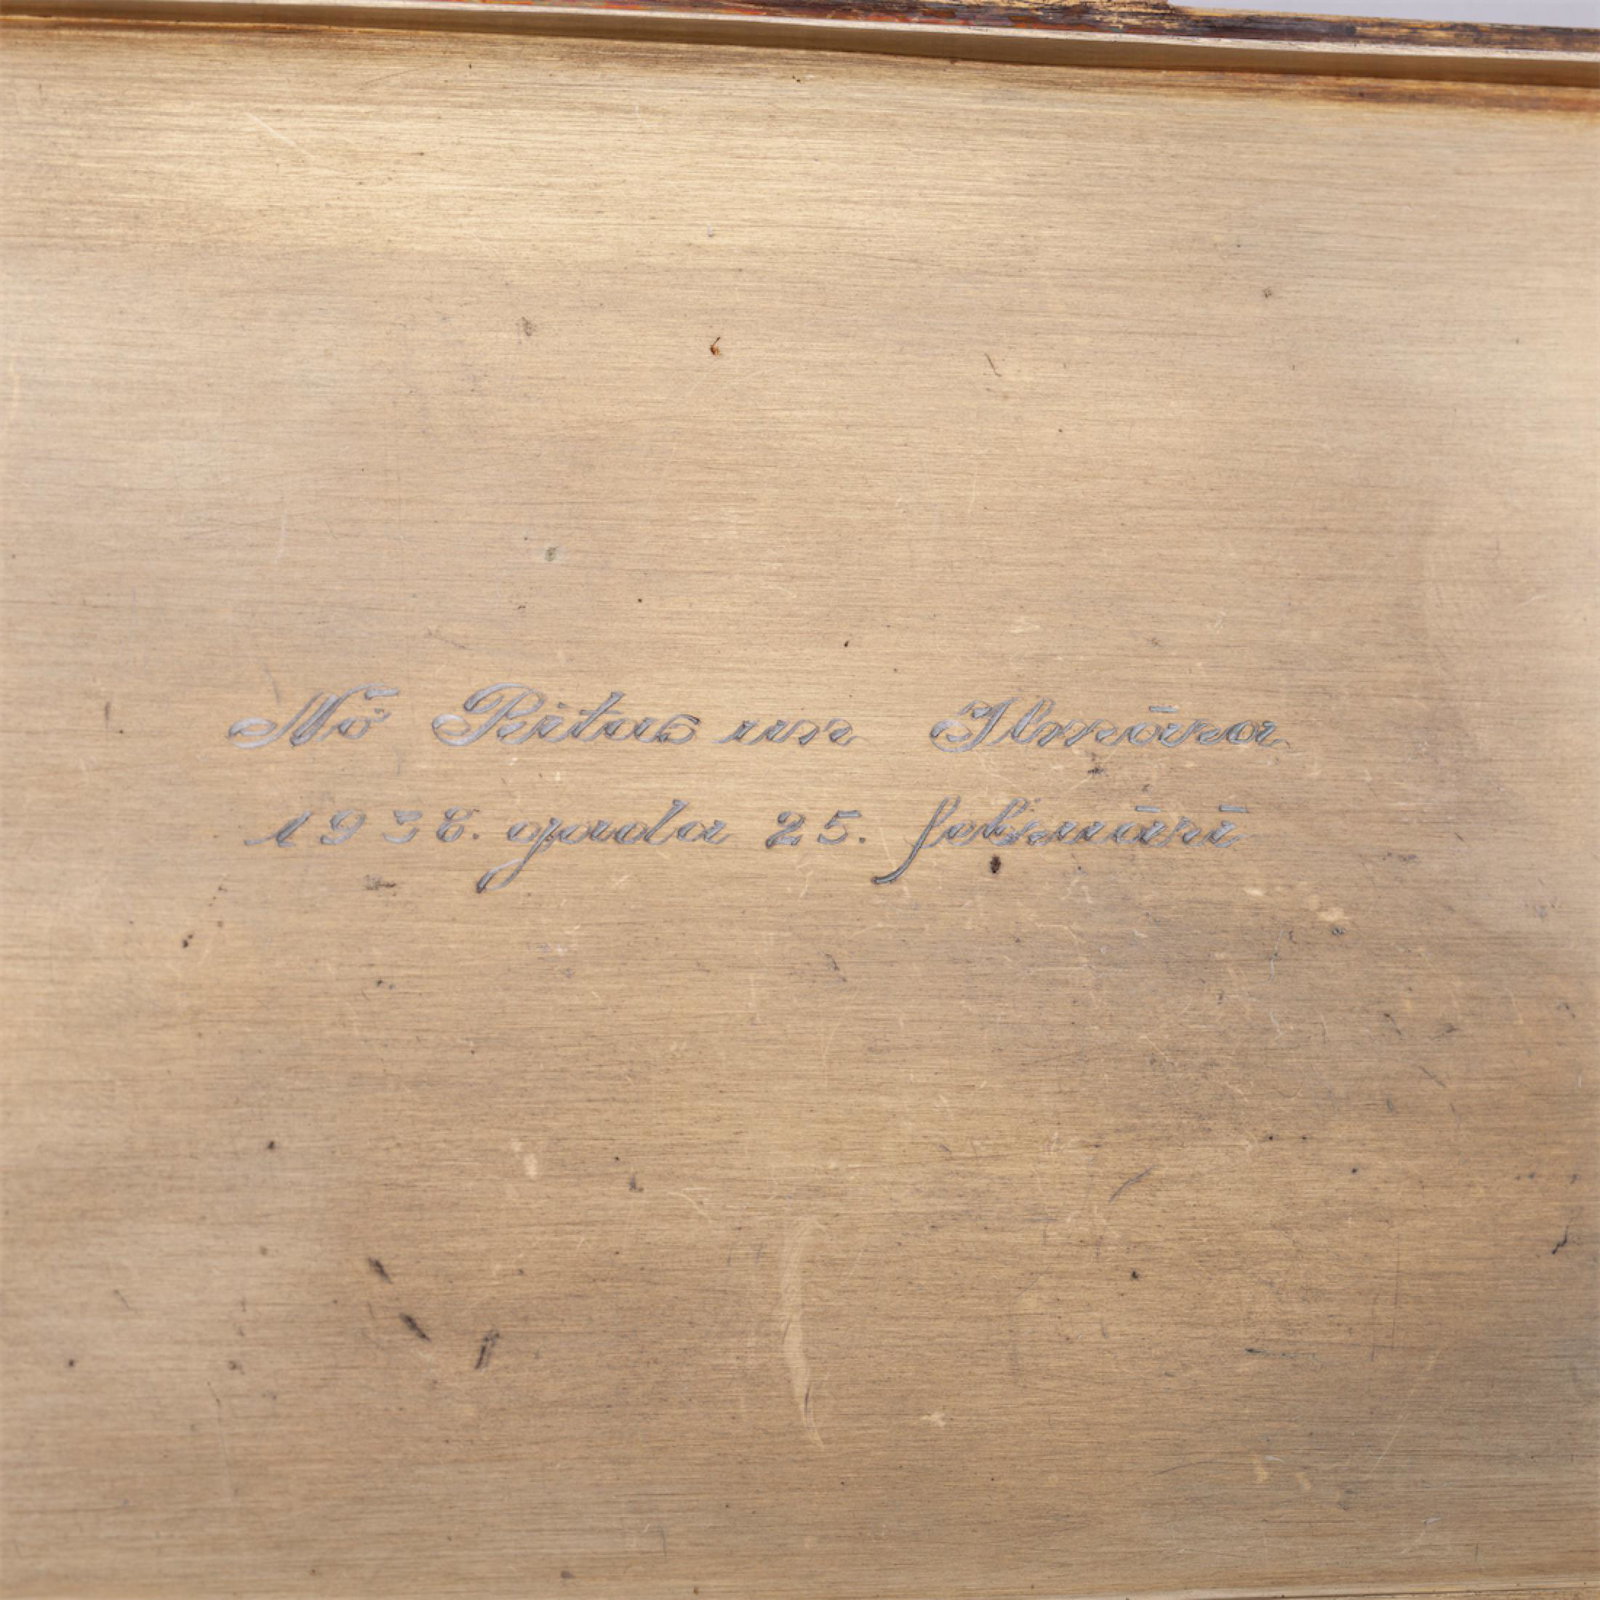 No Ritas un Ilmāra
1938. gada 25. februārī